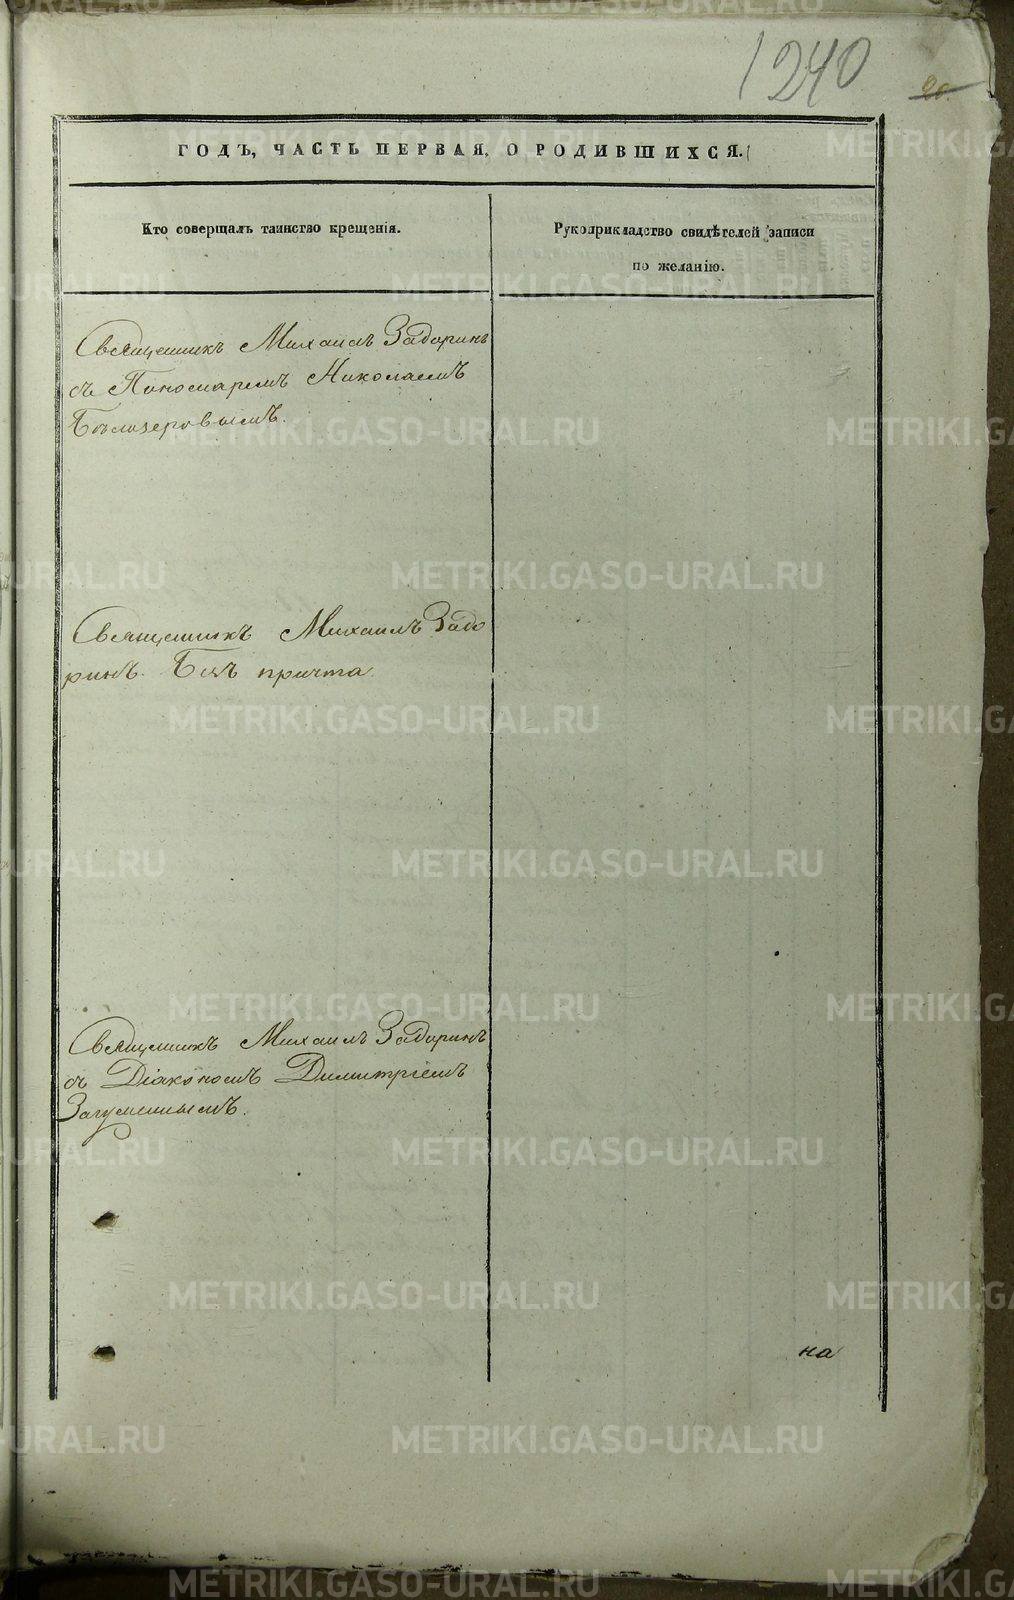 1240
26.
ГОДЪ, ЧАСТЬ ПЕРВАЯ, О РОДИВШИХСЯ.
Кто соверщалъ таинство крещенія.
Рукоприкладство свидѣтелей записи
по желанію.
Священникъ Михаилъ Задоринъ
съ Пономаремъ Николаемъ
Бѣлозеровымъ.
Священникъ Михаилъ Задо
ринъ. Безъ причта.
Священникъ Михаилъ Задоринъ
съ Діакономъ Димитріемъ
Загуменнымъ.
на
METRIKI.GASO-URAL.RU